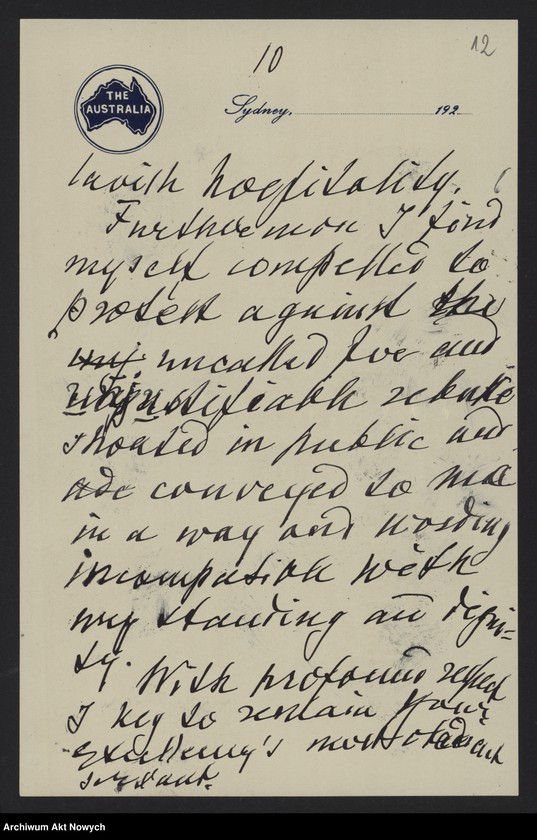 10
12
THE
AUSTRALIA
Sydney, 192
lavish hospitality.
Furthermore I find
myself compelled to
protest against the
uncalled for and
unjustifiable rebuke
shouted in public and
conveyed to me
in a way and wording
incompatible with
my standing and digni=
ty.
With profound respect
I beg to remain Your
Excellency's most obedient
servant.
Archiwum Akt Nowych